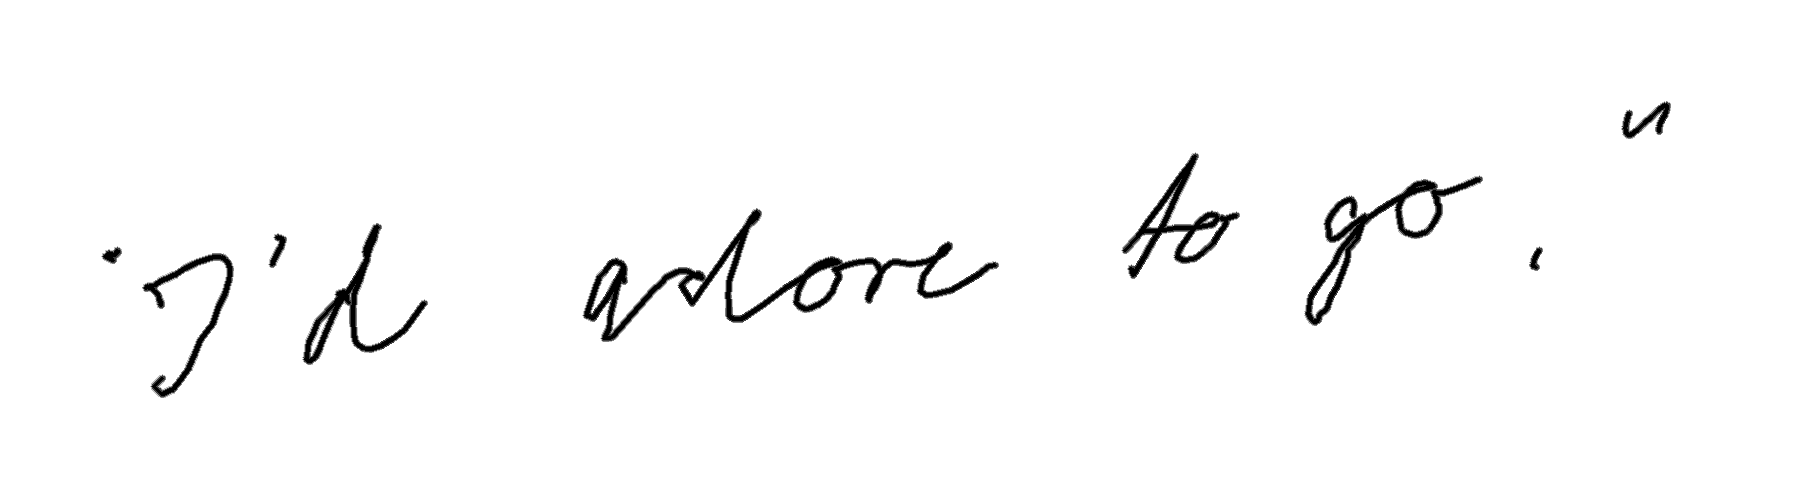 "I'd adore to go."